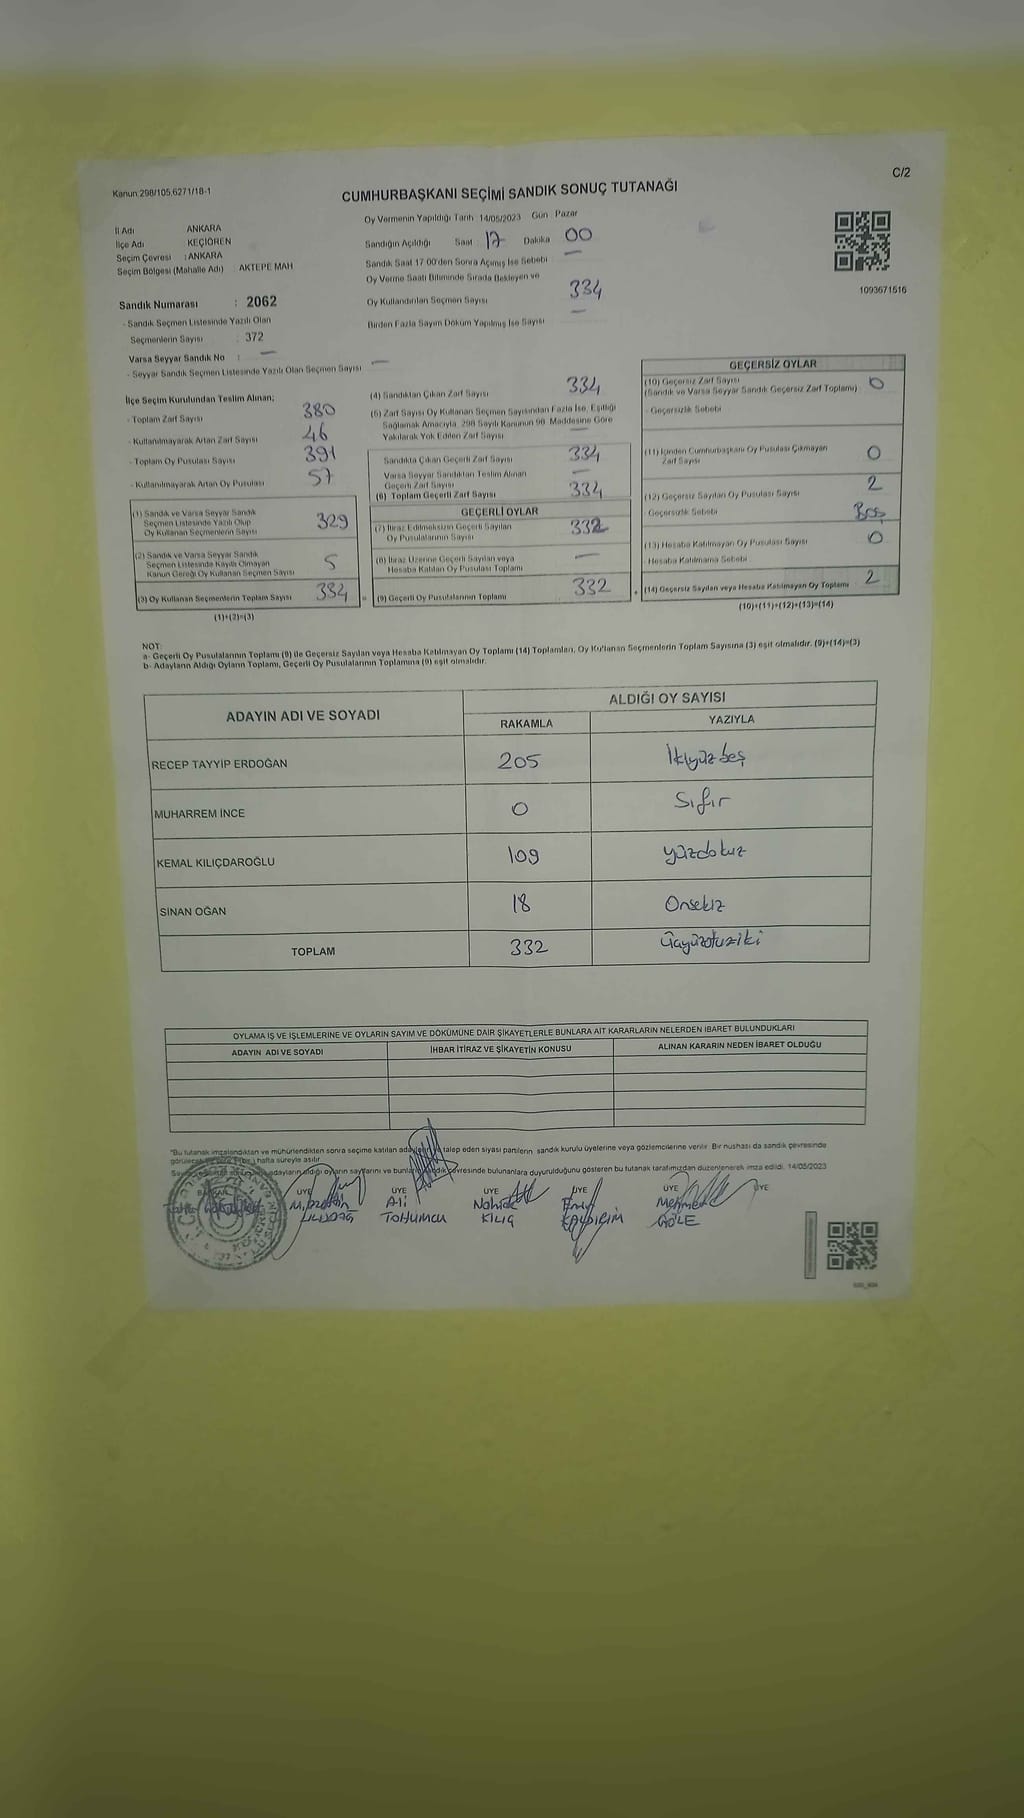 Kanun:298/105,6271/18-1
C/2
CUMHURBAŞKANI SEÇİMİ SANDIK SONUÇ TUTANAĞI
İl Adı ANKARA
İlçe Adı KEÇİÖREN
Seçim Çevresi : ANKARA
Seçim Bölgesi (Mahalle Adı) AKTEPE MAH
Sandık Numarası : 2062
- Sandık Seçmen Listesinde Yazılı Olan
Seçmenlerin Sayısı : 372
Varsa Seyyar Sandık No : —
- Seyyar Sandık Seçmen Listesinde Yazılı Olan Seçmen Sayısı —
Oy Vermenin Yapıldığı Tarih 14/05/2023 Gün Pazar
Sandığın Açıldığı Saat 17 Dakika 00
Sandık Saat 17 00'den Sonra Açımış İse Sebebi —
Oy Verme Saati Bitiminde Sırada Bekleyen ve
Oy Kullandırılan Seçmen Sayısı 334
Birden Fazla Sayım Döküm Yapılmış İse Sayısı —
1093671516
İlçe Seçim Kurulundan Teslim Alınan;
- Toplam Zarf Sayısı 380
- Kullanılmayarak Artan Zarf Sayısı 46
- Toplam Oy Pusulası Sayısı 391
- Kullanılmayarak Artan Oy Pusulası 57
(1) Sandık ve Varsa Seyyar Sandık
Seçmen Listesinde Yazılı Olup
Oy Kullanan Seçmenlerin Sayısı 329
(2) Sandık ve Varsa Seyyar Sandık
Seçmen Listesinde Kayıtlı Olmayan
Kanun Gereği Oy Kullanan Seçmen Sayısı 5
(3) Oy Kullanan Seçmenlerin Toplam Sayısı 334
(1)+(2)=(3)
(4) Sandıktan Çıkan Zarf Sayısı 334
(5) Zarf Sayısı Oy Kullanan Seçmen Sayısından Fazla İse, Eşitliği
Sağlamak Amacıyla, 298 Sayılı Kanunun 98. Maddesine Göre
Yakılarak Yok Edilen Zarf Sayısı —
Sandıkta Çıkan Geçerli Zarf Sayısı 334
Varsa Seyyar Sandıktan Teslim Alınan
Geçerli Zarf Sayısı —
(6) Toplam Geçerli Zarf Sayısı 334
GEÇERLİ OYLAR
(7) İtiraz Edilmeksizin Geçerli Sayılan
Oy Pusulalarının Sayısı 332
(8) İtiraz Üzerine Geçerli Sayılan veya
Hesaba Katılan Oy Pusulası Toplamı —
= (9) Geçerli Oy Pusulalarının Toplamı 332
GEÇERSİZ OYLAR
(10) Geçersiz Zarf Sayısı
(Sandık ve Varsa Seyyar Sandık Geçersiz Zarf Toplamı) 0
- Geçersizlik Sebebi
(11) İçinden Cumhurbaşkanı Oy Pusulası Çıkmayan
Zarf Sayısı 0
(12) Geçersiz Sayılan Oy Pusulası Sayısı 2
- Geçersizlik Sebebi Boş
(13) Hesaba Katılmayan Oy Pusulası Sayısı 0
- Hesaba Katılmama Sebebi
+ (14) Geçersiz Sayılan veya Hesaba Katılmayan Oy Toplamı 2
(10)+(11)+(12)+(13)=(14)
NOT:
a- Geçerli Oy Pusulalarının Toplamı (9) ile Geçersiz Sayılan veya Hesaba Katılmayan Oy Toplamı (14) Toplamları, Oy Kullanan Seçmenlerin Toplam Sayısına (3) eşit olmalıdır. (9)+(14)=(3)
b- Adayların Aldığı Oyların Toplamı, Geçerli Oy Pusulalarının Toplamına (9) eşit olmalıdır.
ADAYIN ADI VE SOYADI
ALDIĞI OY SAYISI
RAKAMLA YAZIYLA
RECEP TAYYİP ERDOĞAN 205 İkiyüzbeş
MUHARREM İNCE 0 Sıfır
KEMAL KILIÇDAROĞLU 109 yüzdokuz
SİNAN OĞAN 18 Onsekiz
TOPLAM 332 Üçyüzotuziki
OYLAMA İŞ VE İŞLEMLERİNE VE OYLARIN SAYIM VE DÖKÜMÜNE DAİR ŞİKAYETLERLE BUNLARA AİT KARARLARIN NELERDEN İBARET BULUNDUKLARI
ADAYIN ADI VE SOYADI İHBAR İTİRAZ VE ŞİKAYETİN KONUSU ALINAN KARARIN NEDEN İBARET OLDUĞU
"Bu tutanak imzalandıktan ve mühürlendikten sonra seçime katılan talep eden siyasi partilerin sandık kurulu üyelerine veya gözlemcilerine verilir. Bir nushası da sandık çevresinde
hafta süreyle asılır.
adayların aldığı oyların sayılarını ve bunların çevresinde bulunanlara duyurulduğunu gösteren bu tutanak tarafımızdan düzenlenerek imza edildi. 14/05/2023
ÜYE ÜYE ÜYE ÜYE ÜYE ÜYE
Ali Mehmet
TOHUMCU KILIÇ